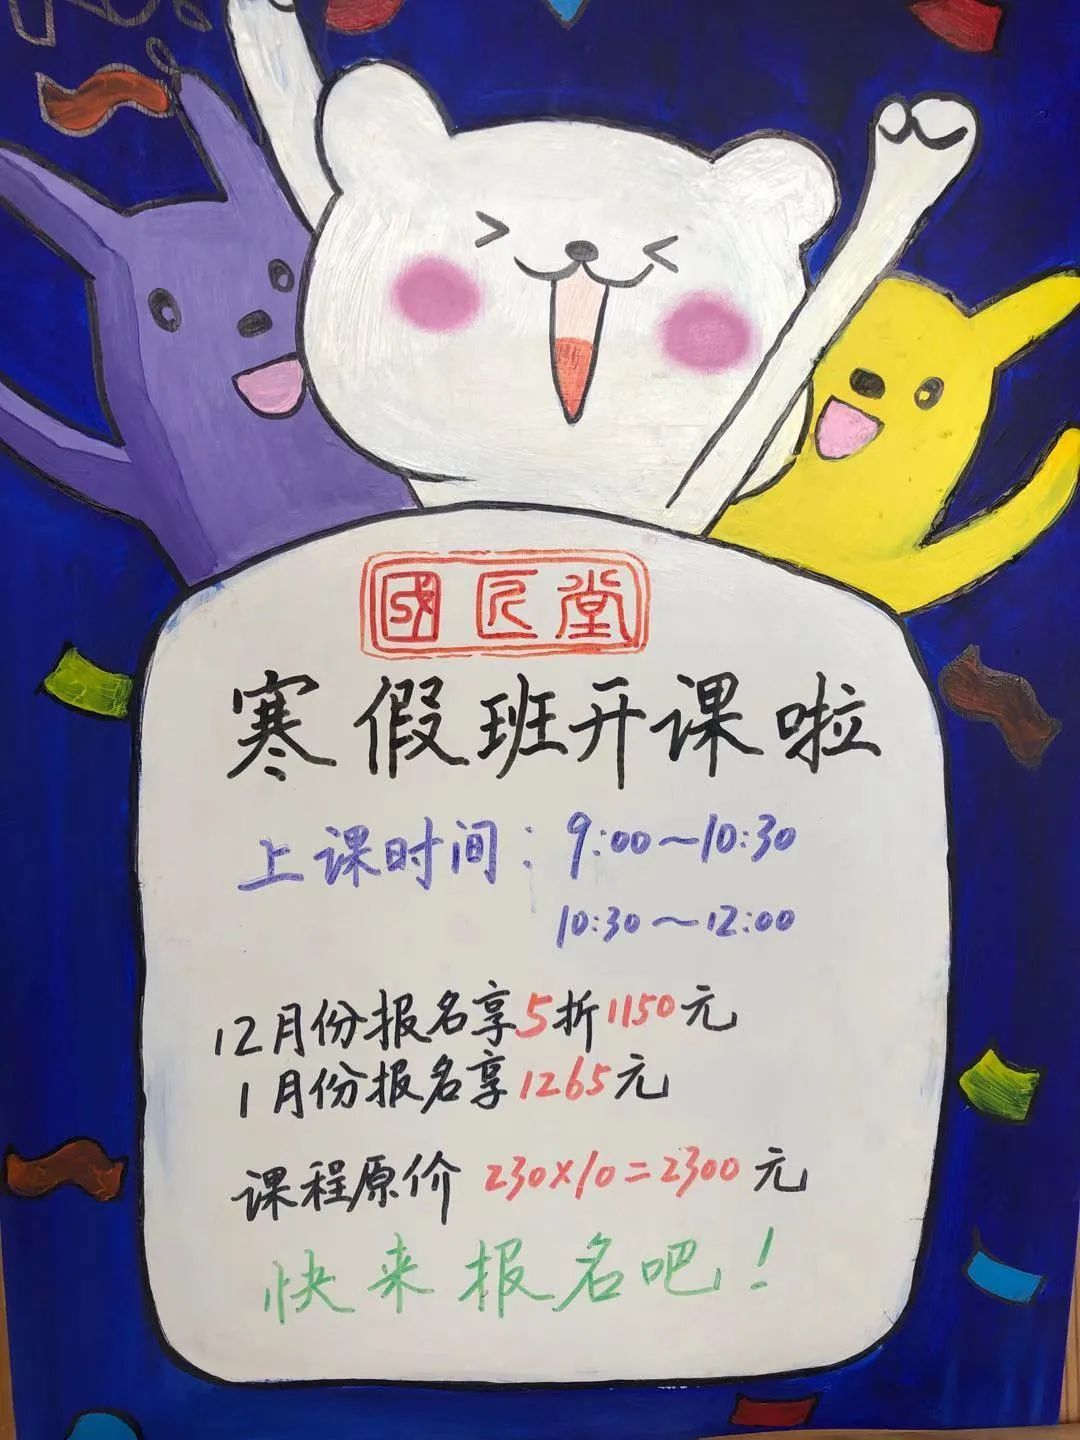 國匠堂
寒假班开课啦
上课时间：9:00~10:30
10:30~12:00
12月份报名享5折1150元
1月份报名享1265元
课程原价 230×10=2300元
快来报名吧！